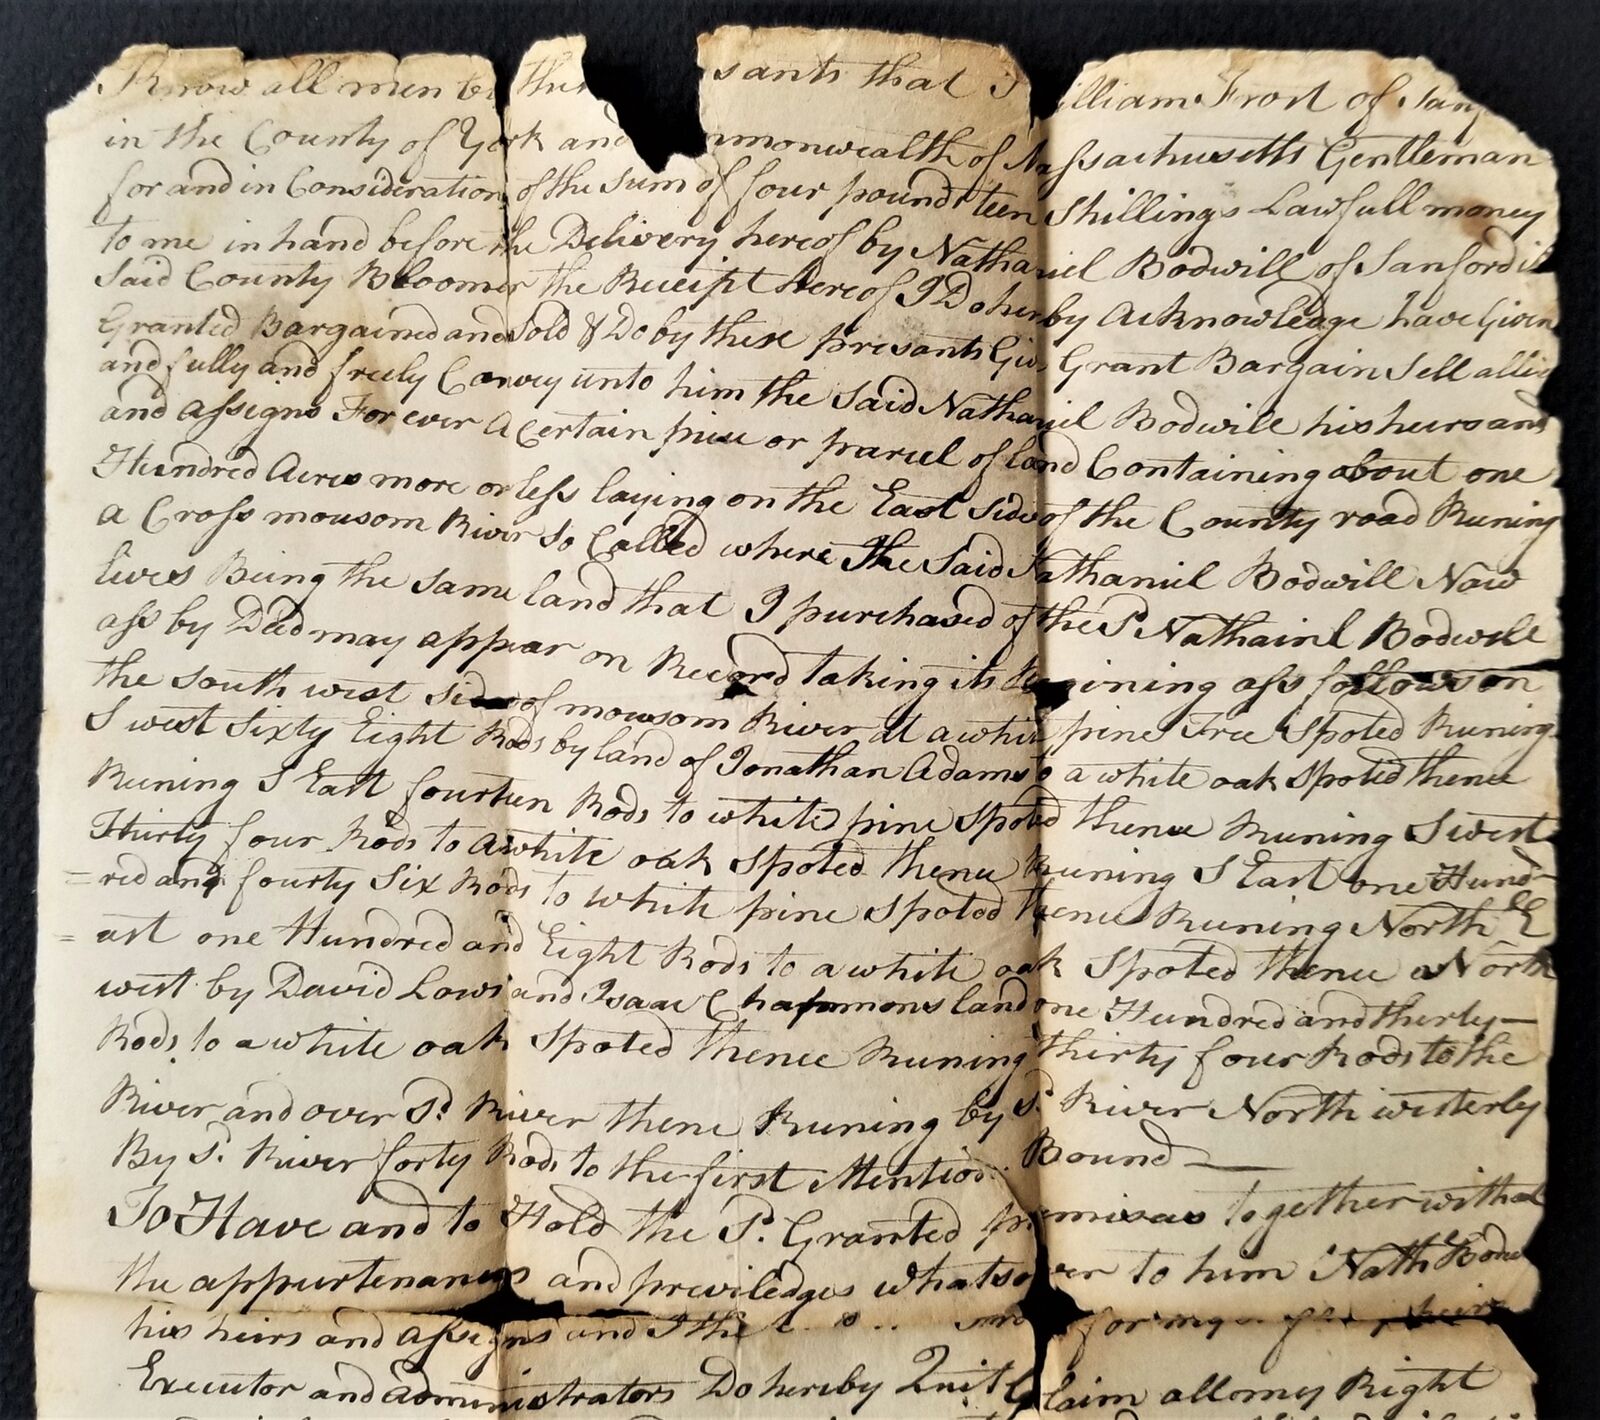 Know all men by these sants that I illiam Frost of San
in the County of York and mmonwealth of Massachusetts Gentleman
for and in Consideration of the Sum of four pounds teen Shillings Lawfull money
to me in hand before the Delivery hereof by Nathaniel Bodwill of Sanford in
Said County Bloomer the Receipt hereof I Do herby Acknowledge have Given
Granted Bargained and Sold & Do by these presants Give Grant Bargain Sell
and fully and freely Convey unto him the Said Nathaniel Bodwill his heirs and
and assigns For ever A Certain piece or parcel of land Containing about one
Hundred Acres more or less laying on the East Side of the County road Runing
a Cross mousom River So Called where The Said Nathaniel Bodwill Now
lives Being the Same land that I purchased of the Sd Nathainl Bodwill
ass by Deed may appear on Record taking its Begining ass follows on
the South west Side of mousom River at a white pine Tree Spoted Runing
S west Sixty Eight Rods by land of Jonathan Adams to a white oak Spoted thence
Runing S East fourteen Rods to white pine Spoted thence Runing S west
Thirty four Rods to a white oak Spoted thence Runing S East one Hund-
=red and fourty Six Rods to white pine Spoted thence Runing North E
=ast one Hundred and Eight Rods to a white oak Spoted thence North
west by David Lows and Isaac Chapmons land one Hundred and therty
Rods to a white oak Spoted thence Runing thirty four Rods to the
River and over Sd River thence Runing by Sd River North westerly
By Sd River forty Rods to the first Mentiod Bound
To Have and to Hold the Sd Granted premisas together with al
the appurtenances and priviledges whatsoever to him Nathl Bodw
his heirs and assigns and I the for my heirs
Executor and administrators Do hereby Quit Claim all my Right